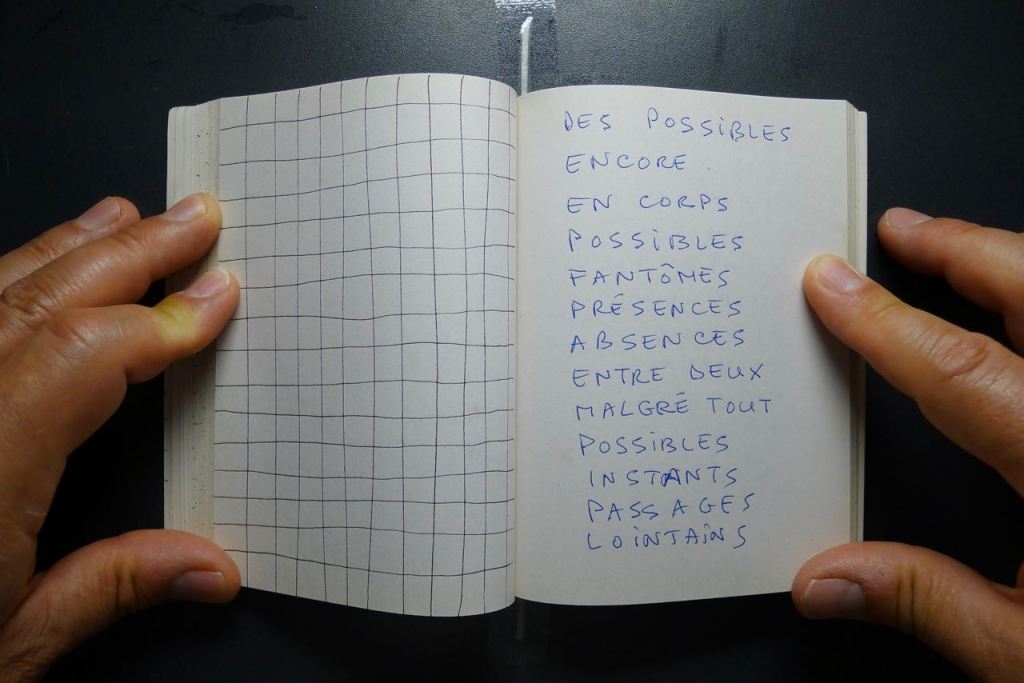 DES POSSIBLES
ENCORE
EN CORPS
POSSIBLES
FANTÔMES
PRÉSENCES
ABSENCES
ENTRE DEUX
MALGRÉ TOUT
POSSIBLES
INSTANTS
PASSAGES
LOINTAINS